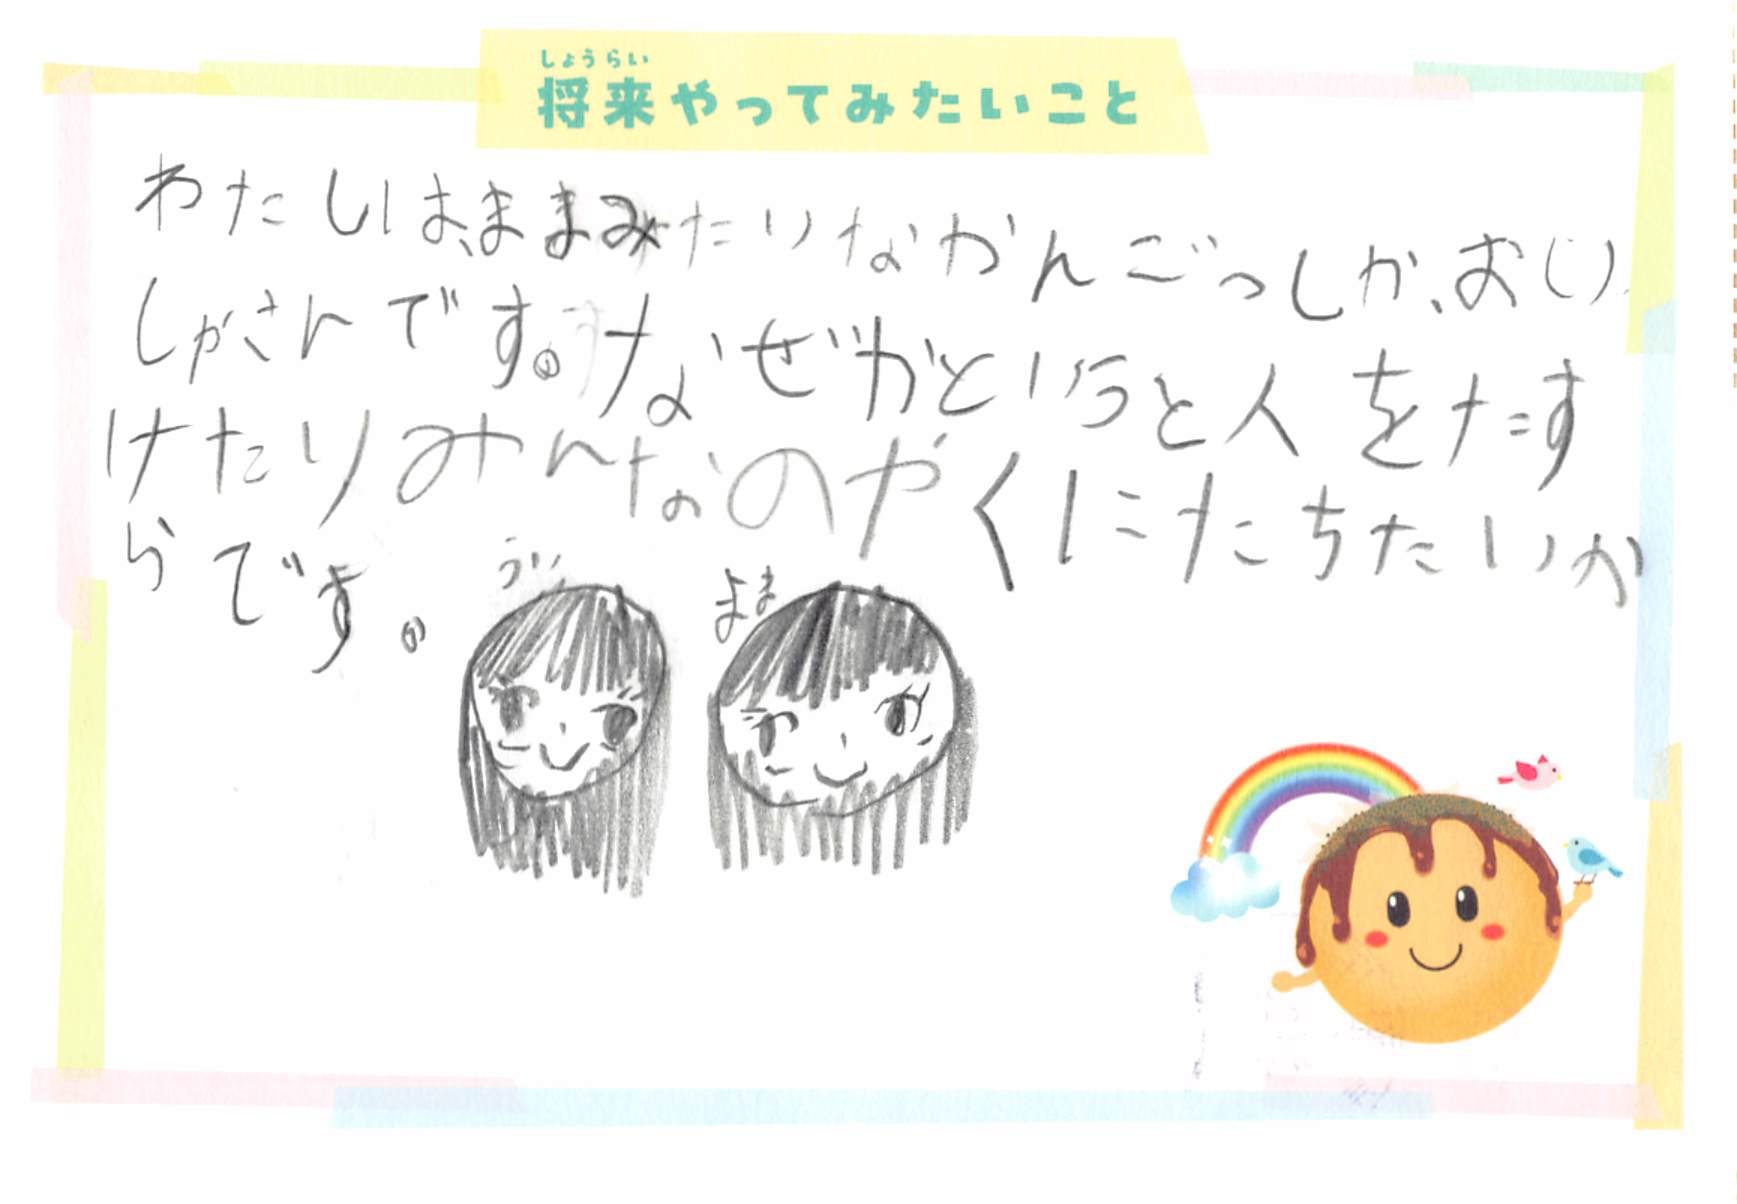 しょうらい
将来やってみたいこと
わたしは、ままみたいなかんごっしか、おい
しゃさんです。なぜかというと人をたす
けたりみんなのやくにたちたいか
らです。
うい
まま